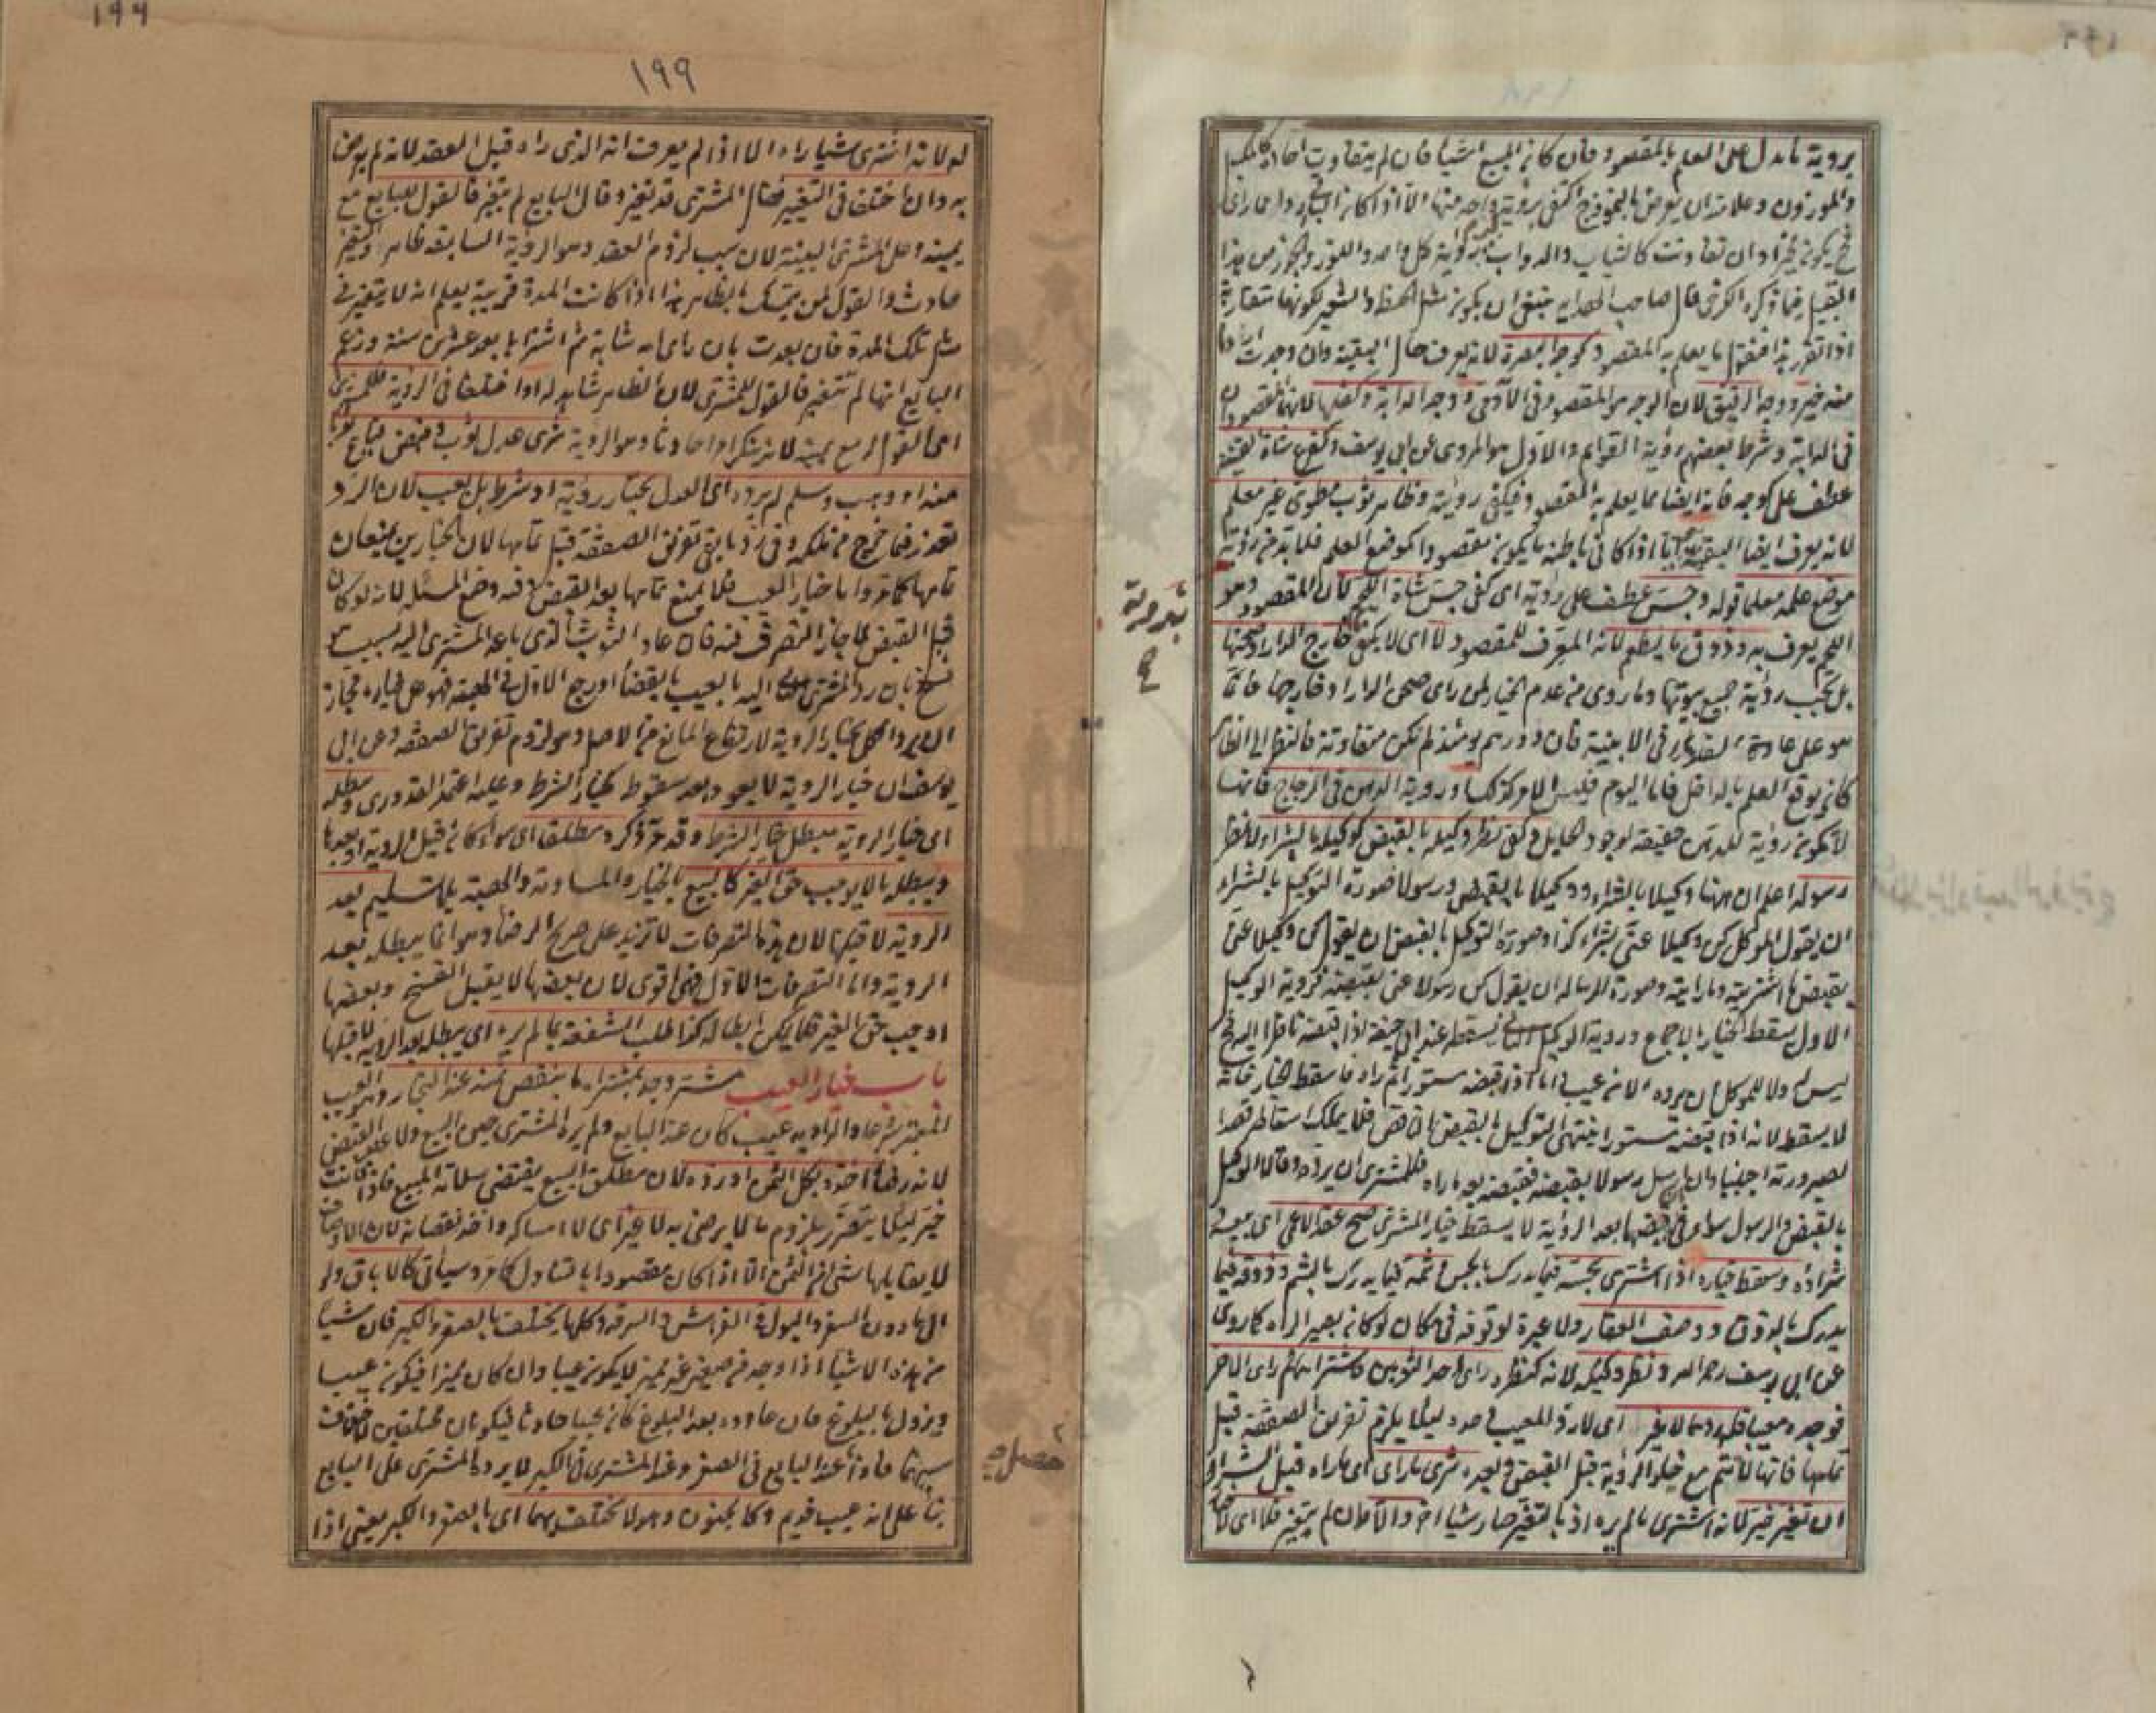 برؤية ما يدل على العلم بالمقصود فان كان المبيع اشياء فان لم يتفاوت احاده كالمكيل
والموزون وعلامته ان يعرض بالنموذج اكتفى برؤية واحد منها الا اذا كان الباقي اردأ مما رأى
فح يكون مخيرا وان تفاوت كالثياب والدواب رؤية كل واحد والجوز والبيض من هذا
القبيل فيما ذكره الكرخي قال صاحب الهداية ينبغي ان يكون مثل الحنطة والشعير لكونها متقاربة
اذا تقرر هذا فنقول ما يعلم به المقصود كوجه الصبرة لانه يعرف حال البقية وان وجدت
منه خير ووجه الرقيق لان الوجه هو المقصود في الآدمي ووجه الدابة وكفلها لانهما المقصودان
في الدابة وشرط بعضهم رؤية القوائم والاول هو المروي عن ابي يوسف وكضرع شاة القنية
عطف على كوجه فانه ايضا مما يعلم به المقصود فيكفي رؤيته وظاهر ثوب مطوي غير معلم
لانه يعرف ايضا البقية اما اذا كان في باطنه ما يكون مقصودا كموضع العلم فلا بد من رؤية
موضع علمه معلما قوله وجس عطف على رؤية اى كفى جس شاة اللحم لان المقصود وهو
اللحم يعرف به وذوق ما يطعم لانه المعرف للمقصود لا اى لا يكفي خارج الدار او صحنها
بل يجب رؤية جميع بيوتها وما روى من عدم الخيار لمن رأى صحن الدار او خارجها فانما
هو على عادة القدماء في الابنية فان دورهم يومئذ لم تكن متفاوتة فالنظر الى الظاهر
كان يوقع العلم بالداخل فاما اليوم فليس الامر كذلك ورؤية الدهن في الزجاج فانها
لا تكون رؤية للدهن حقيقة لوجود الحائل وكفى نظر وكيله بالقبض كوكيله بالشراء لا نظر
رسوله اعلم ان ههنا وكيلا بالشراء ووكيلا بالقبض ورسولا فصورة التوكيل بالشراء
ان يقول الموكل كن وكيلا عنى بشراء كذا وصورة التوكيل بالقبض ان يقول كن وكيلا عنى
بقبض ما اشتريته وما رأيته وصورة الرسالة ان يقول كن رسولا عنى بقبضه فرؤية الوكيل
الاول يسقط الخيار بالاجماع ورؤية الوكيل الثاني يسقط عند ابي حنيفة اذا قبضه ناظرا اليه فح
ليس له ولا للموكل ان يرده الا من عيب اما اذا قبضه مستورا ثم رآه فاسقط الخيار فانه
لا يسقط لانه اذا قبضه مستورا ينتهى التوكيل بالقبض الناقص فلا يملك اسقاطه قصدا
لصيرورته اجنبيا وان ارسل رسولا بقبضه فقبضه بعد ما رآه فللمشتري ان يرده وقالا الوكيل
بالقبض والرسول سواء في ان قبضهما بعد الرؤية لا يسقط خيار المشتري صح عقد الاعمى اى بيعه
شراؤه وسقط خياره اذا اشترى بجسه فيما يدرك بالجس وشمه فيما يدرك بالشم وذوقه فيما
يدرك بالذوق ووصف العقار ولا عبرة لوقوفه في مكان لو كان بصيرا لرآه كما روى
عن ابي يوسف رحمه الله ونظر وكيله لانه كنظره رأى احد الثوبين وشراهما ثم رأى الاخر
فوجده معيبا فله ردهما لا غير اى لا رد المعيب وحده ليئلا يلزم تفريق الصفقة قبل
تمامها فانها لا تتم مع خيار الرؤية قبل القبض وبعده شرى ما رأى اى ما رآه قبل الشراء
ان تغير خير لانه اشترى ما لم يره اذ بالتغير صار شيئا آخر والا اى وان لم يتغير فلا اى لا
بتمرية
لو لانه اشترى شيئا رآه الا اذا لم يعرف انه الذى رآه قبل العقد لانه لم يرض
به وان اختلفا في التغير فقال المشتري قد تغير وقال البايع لم يتغير فالقول للبايع مع
يمينه وعلى المشتري البينة لان سبب لزوم العقد وهو الرؤية السابقة ظاهر والتغير
حادث والقول لمن يتمسك بالظاهر هذا اذا كانت المدة قريبة يعلم انه لا يتغير في
مثل تلك المدة فان بعدت بان رأى امه شابة ثم اشتراها بعد عشرين سنة وزعم
البايع انها لم تتغير فالقول للمشتري لان الظاهر شاهد له او اختلفا في الرؤية فللمشتري
اى القول له مع يمينه لانه ينكر امرا حادثا وهو الرؤية شرى عدل ثوب وقبض فباع ثوبا
منه او وهب وسلم لم يرده اى العدل بخيار رؤية او شرط بل بعيب لان الرد
تعذر فيما خرج من ملكه وفي رد ما بقي تفريق الصفقة قبل تمامها لان الخيارين يمنعان
تمامها كما مر واما خيار العيب فلا يمنع تمامها بعد القبض وفيه وضع المسئلة لانه لو كان
قبل القبض لما جاز التصرف فيه فان عاد الثوب الذى باعه المشتري اليه بسبب هو
فسخ بان رد المشتري الثاني اليه بالعيب بالقضاء او رجع الاول في الهبة فهو على خياره فجاز
ان يرد الكل بخيار الرؤية لارتفاع المانع من الاصل وهو لزوم تفريق الصفقة وعن ابي
يوسف ان خيار الرؤية لا يعود بعد سقوطه كخيار الشرط وعليه اعتمد القدوري ومبطله
اى خيار الرؤية مبطل خيار الشرط وقد مر ذكره مطلقا اى سواء كان قبل الرؤية او بعدها
ويبطله ما لا يوجب حق الغير كالبيع بالخيار والمساومة والهبة بلا تسليم بعد
الرؤية لا قبلها لان هذه التصرفات لا تزيد على صريح الرضا وهو انما يبطله بعد
الرؤية واما التصرفات الاول فهي اقوى لان بعضها لا يقبل الفسخ وبعضها
اوجب حق الغير فلا يمكن ابطاله كذا طلب الشفعة بما لم يره اى يبطله بعد الرؤية لا قبلها
باب خيار العيب مشتر وجد بمشتراه ما ينقص ثمنه عند التجار وهو العيب
المعتبر شرعا والمراد به عيب كان عند البايع ولم يره المشتري حين البيع ولا عند القبض
لانه رضا اخذه بكل الثمن او رده لان مطلق البيع يقتضى سلامة المبيع فاذا فاتت
خير ليئلا يتضرر بلزوم ما لا يرضى به لا غير اى لا امساكه واخذ نقصانه لان الاوصاف
لا يقابلها شئ من الثمن الا اذا كان مقصودا بالتناول كما مر وسيأتي كالاباق ولو
الى ما دون السفر والبول في الفراش والسرقة وكلها يختلف بالصغر والكبر فان شيئا
من هذه الاشياء اذا وجد من صغير غير مميز لا يكون عيبا وان كان مميزا فيكون عيبا
ويزول بالبلوغ فان عاوده بعد البلوغ كان عيبا حادثا فيكونان مختلفين لاختلاف
سببهما فاذا عند البايع في الصغر وعند المشتري في الكبر لا يرد المشتري على البايع
بناء على انه عيب قديم وكالجنون وهو لا يختلف بهما اى بالصغر والكبر يعنى اذا
١٩٩
حصل